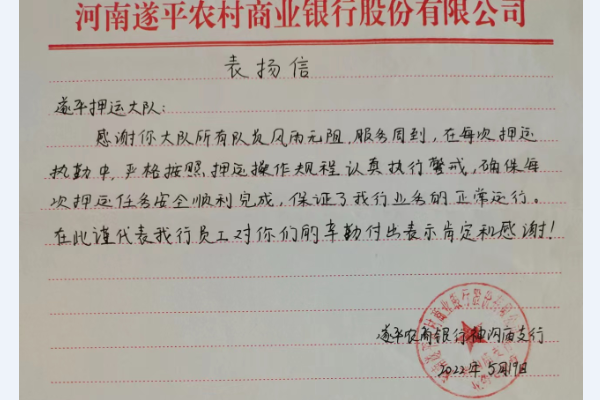 河南遂平农村商业银行股份有限公司
表扬信
遂平押运大队：
感谢你大队所有队员风雨无阻，服务周到，在每次押运
执勤中，严格按照押运操作规程认真执行警戒，确保每
次押运任务安全顺利完成，保证了我行业务的正常运行。
在此谨代表我行员工对你们的辛勤付出表示肯定和感谢！
遂平农商银行神沟庙支行
2022年5月19日